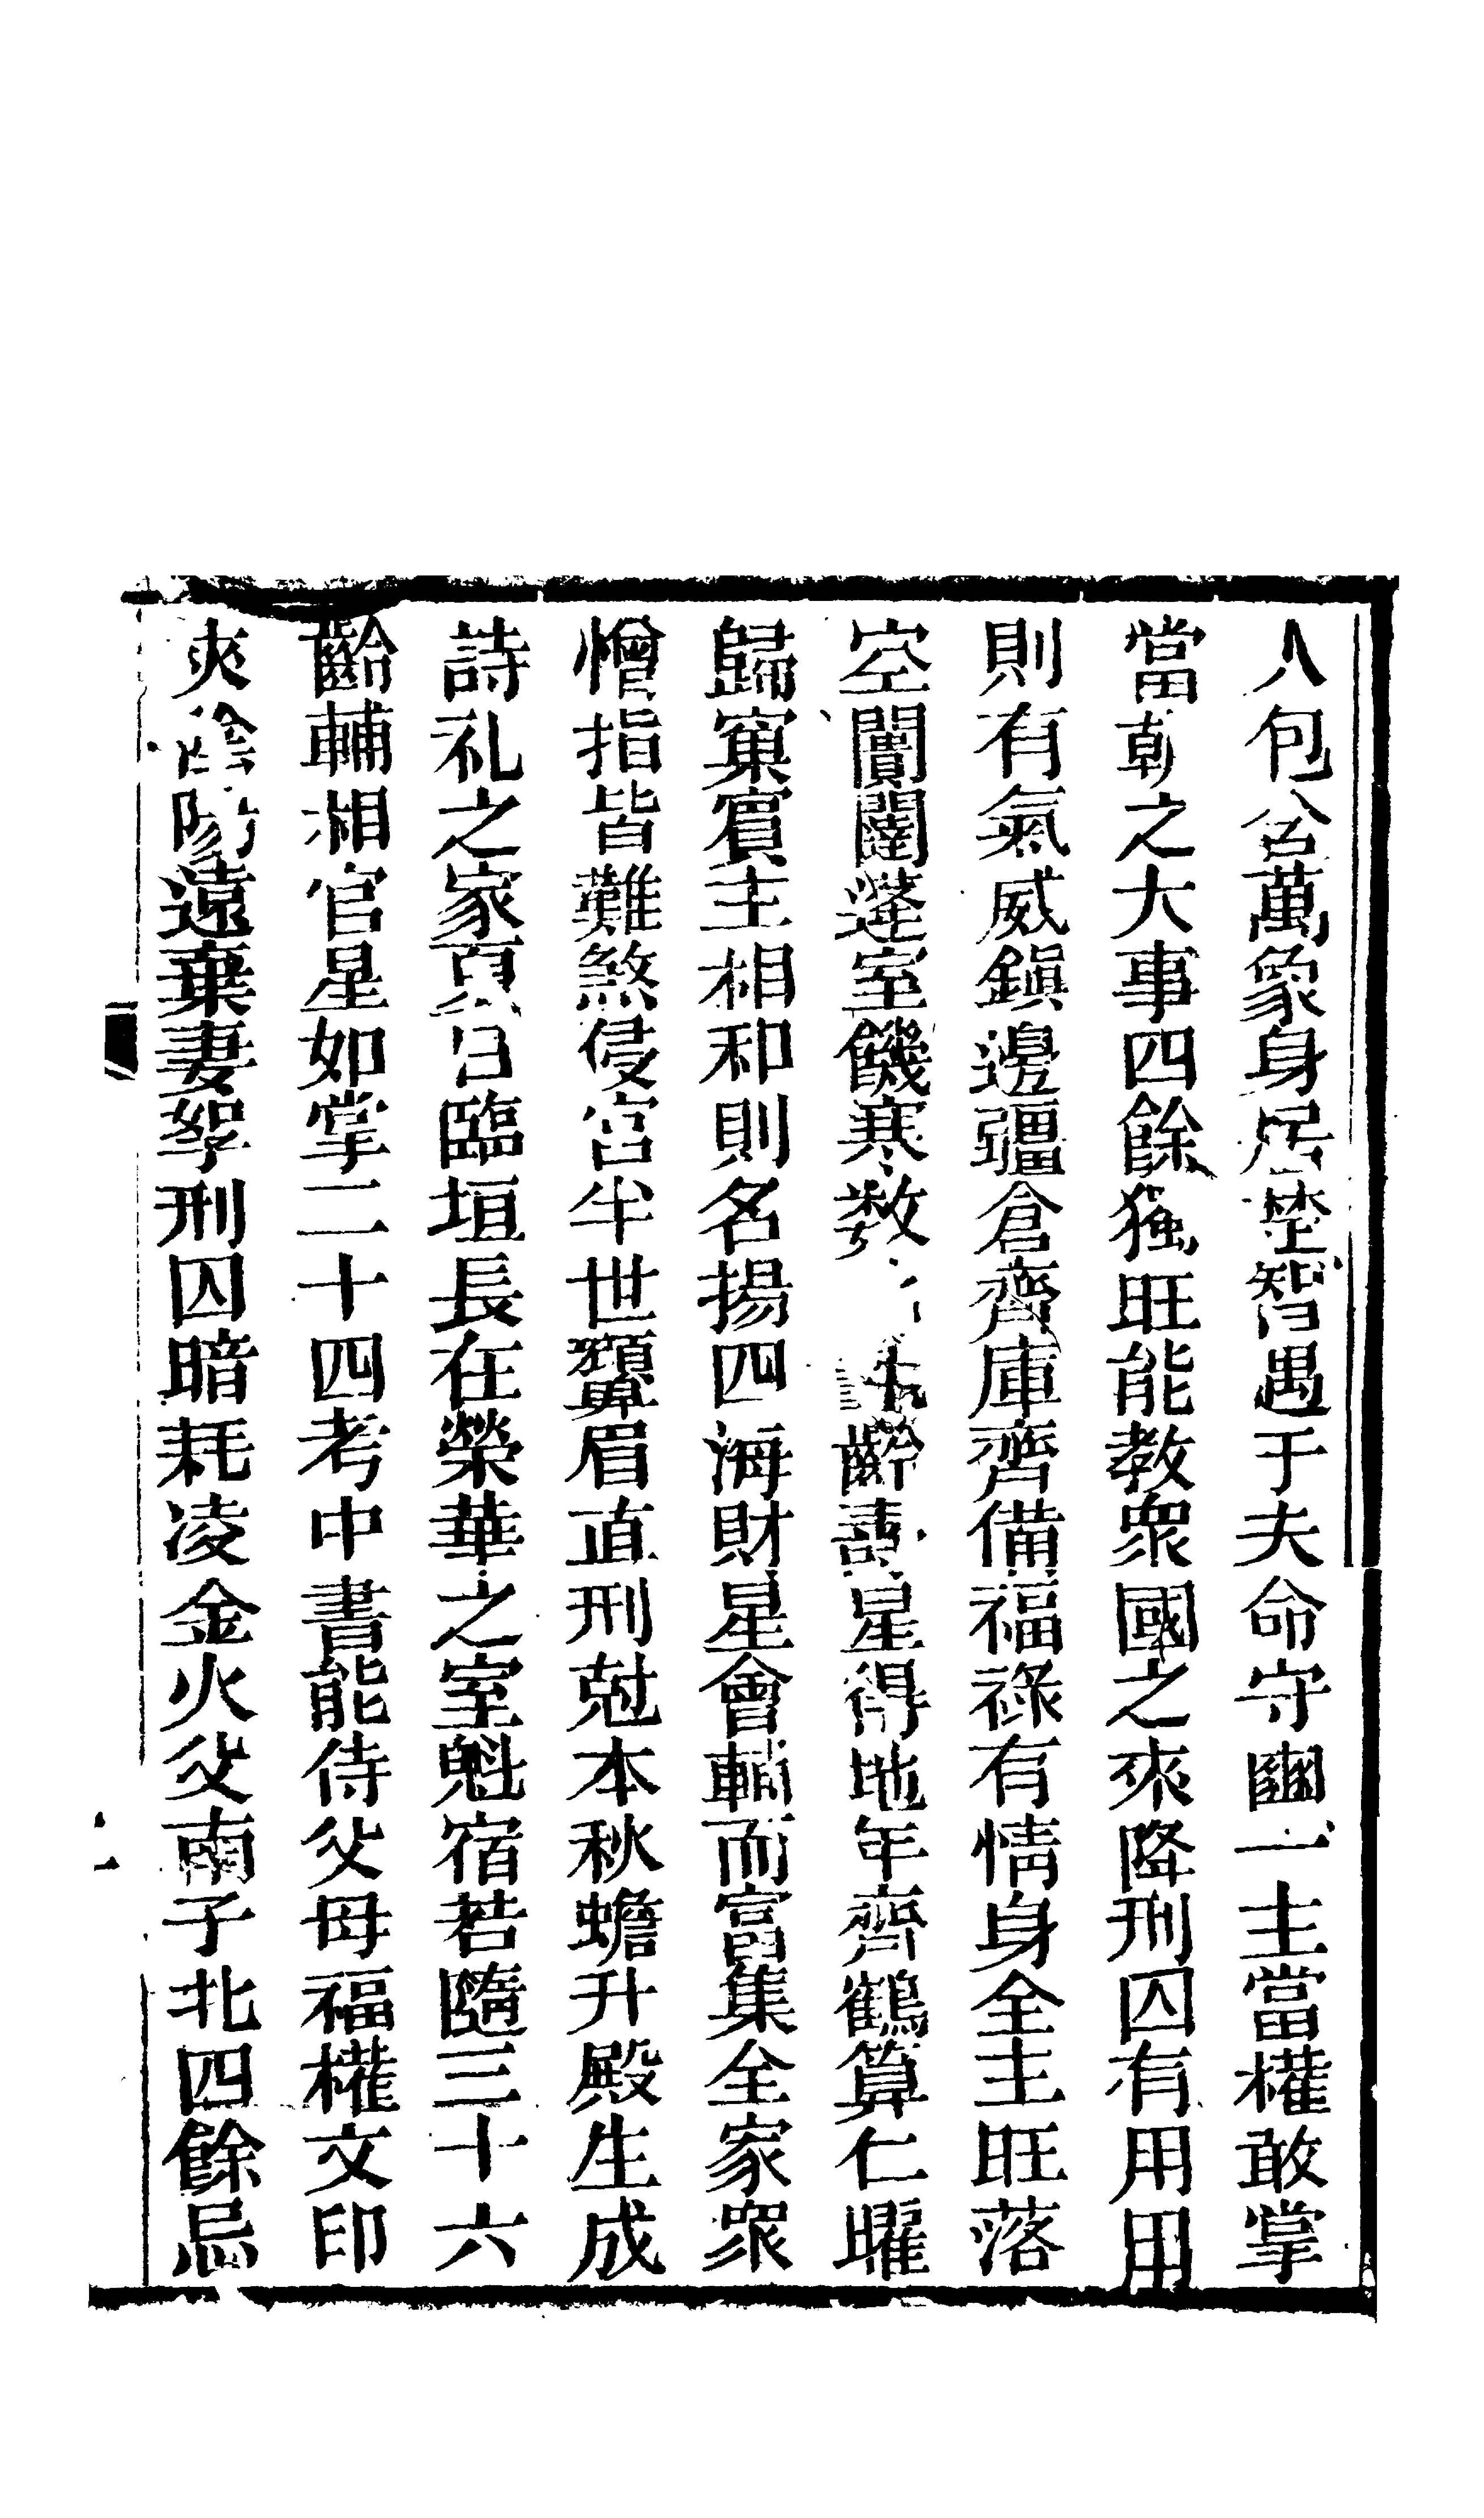 人包含萬象身居楚智遇于夫命守豳一主當權敢掌
當朝之大事四餘獨旺能教衆國之來降刑囚有用用
則有氣威鎮邊疆倉齊庫齊備福祿有情身全主旺落
空闤闠蓬室饑寒数齡壽星得地年齊鶴算仁曜
歸窠賓主相和則名揚四海財星會輔而富集全家衆
憎指皆難煞侵宮半世顰眉直刑尅本秋蟾升殿生成
詩礼之家夏日臨垣長在榮華之室魁宿若隨三十六
齡輔相官星如掌二十四考中書能侍父母福權文印
夾陰陽遠棄妻孥刑囚暗耗凌金火父南子北四餘忌